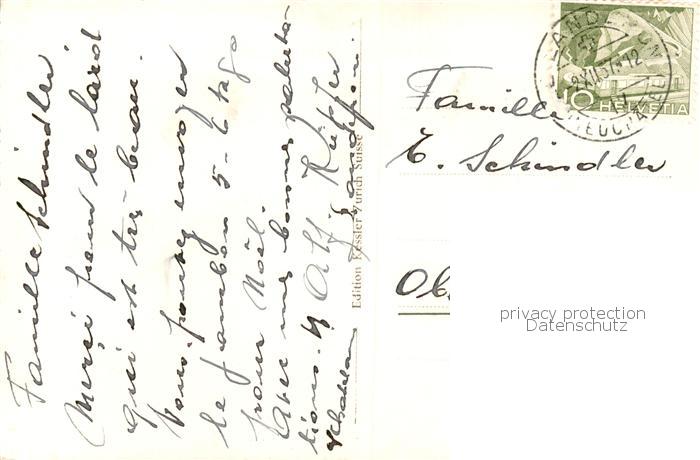 Famille Schindler
Merçi pour le lard
qui est très beau.
Vous pouvez envoyer
le jambon 5-6 tage
pour Noël.
Avec mes bonnes saluta-
tions. Alf. 
Edition Kessler Zurich Suisse
HELVETIA
10
Famille
E. Schindler
Ob
privacy protection
Datenschutz